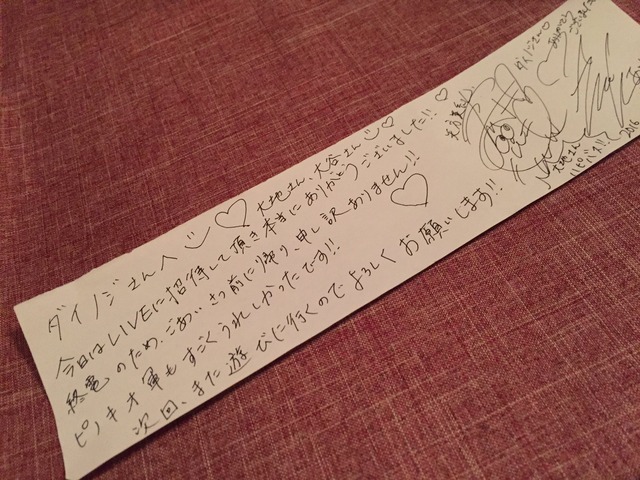 ダイノジさんへ
大地さん、大谷さん
今日はLIVEに招待して頂き本当にありがとうございました!!
終電のため、ごあいさつ前に帰り、申し訳ありません!!
ピノキオ軍もすごくうれしかったです!!
次回、また遊びに行くのでよろしくお願いします!!
ダイノジさん
ありがとう
ございました
大地さん
ハピバ!!
2016